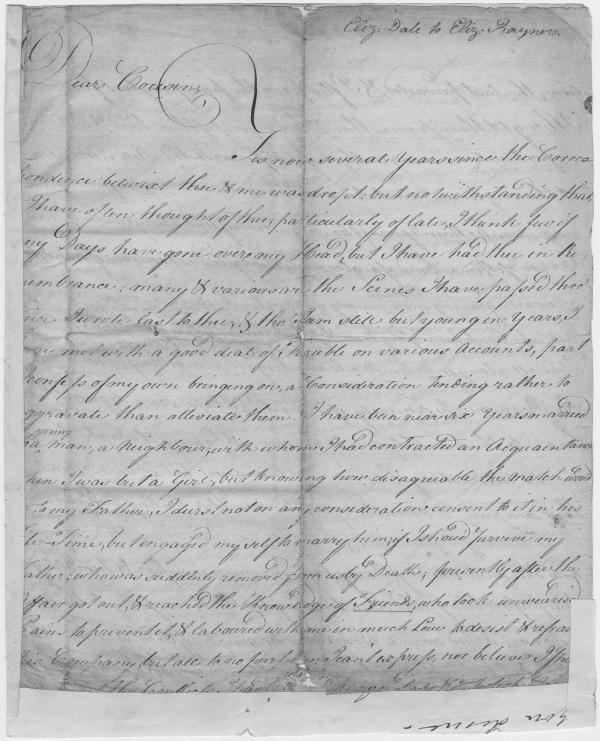 Eliz: Dale to Eliz: Rayners.
Dear Cousin,
Tis now several Years since the Corres
pondence betwixt thee & me was dropt; but notwithstanding that,
I have often thought of thee, particularly of late, I think few if
ny Days have gone over my Head, but I have had thee in Re
membrance; many & various are the Scenes I have passed thro'
ince I wrote last to thee, & tho' I am still but young in Years, I
have met with a good deal of Trouble on various Accounts, part
I confess of my own bringing on, a Consideration tending rather to
ggravate than alleviate them. I have been near six Years married
to a young man, a Neighbour, with whom I had contracted an Acquaintance
when I was but a Girl, but knowing how disagreable the Match would
to my Father, I durst not on any consideration consent to it in his
Life-Time, but engaged myself to marry him, if I shoud survive my
ather, who was suddenly removed from us by Death; presently after the
ffair got out, & reached the Knowledge of Friends, who took unwearied
Pains to prevent it, & laboured with me in much Love to desist & refrain
his Company, but all to no purpose, I can't express, nor believe I
the Conflicts I had